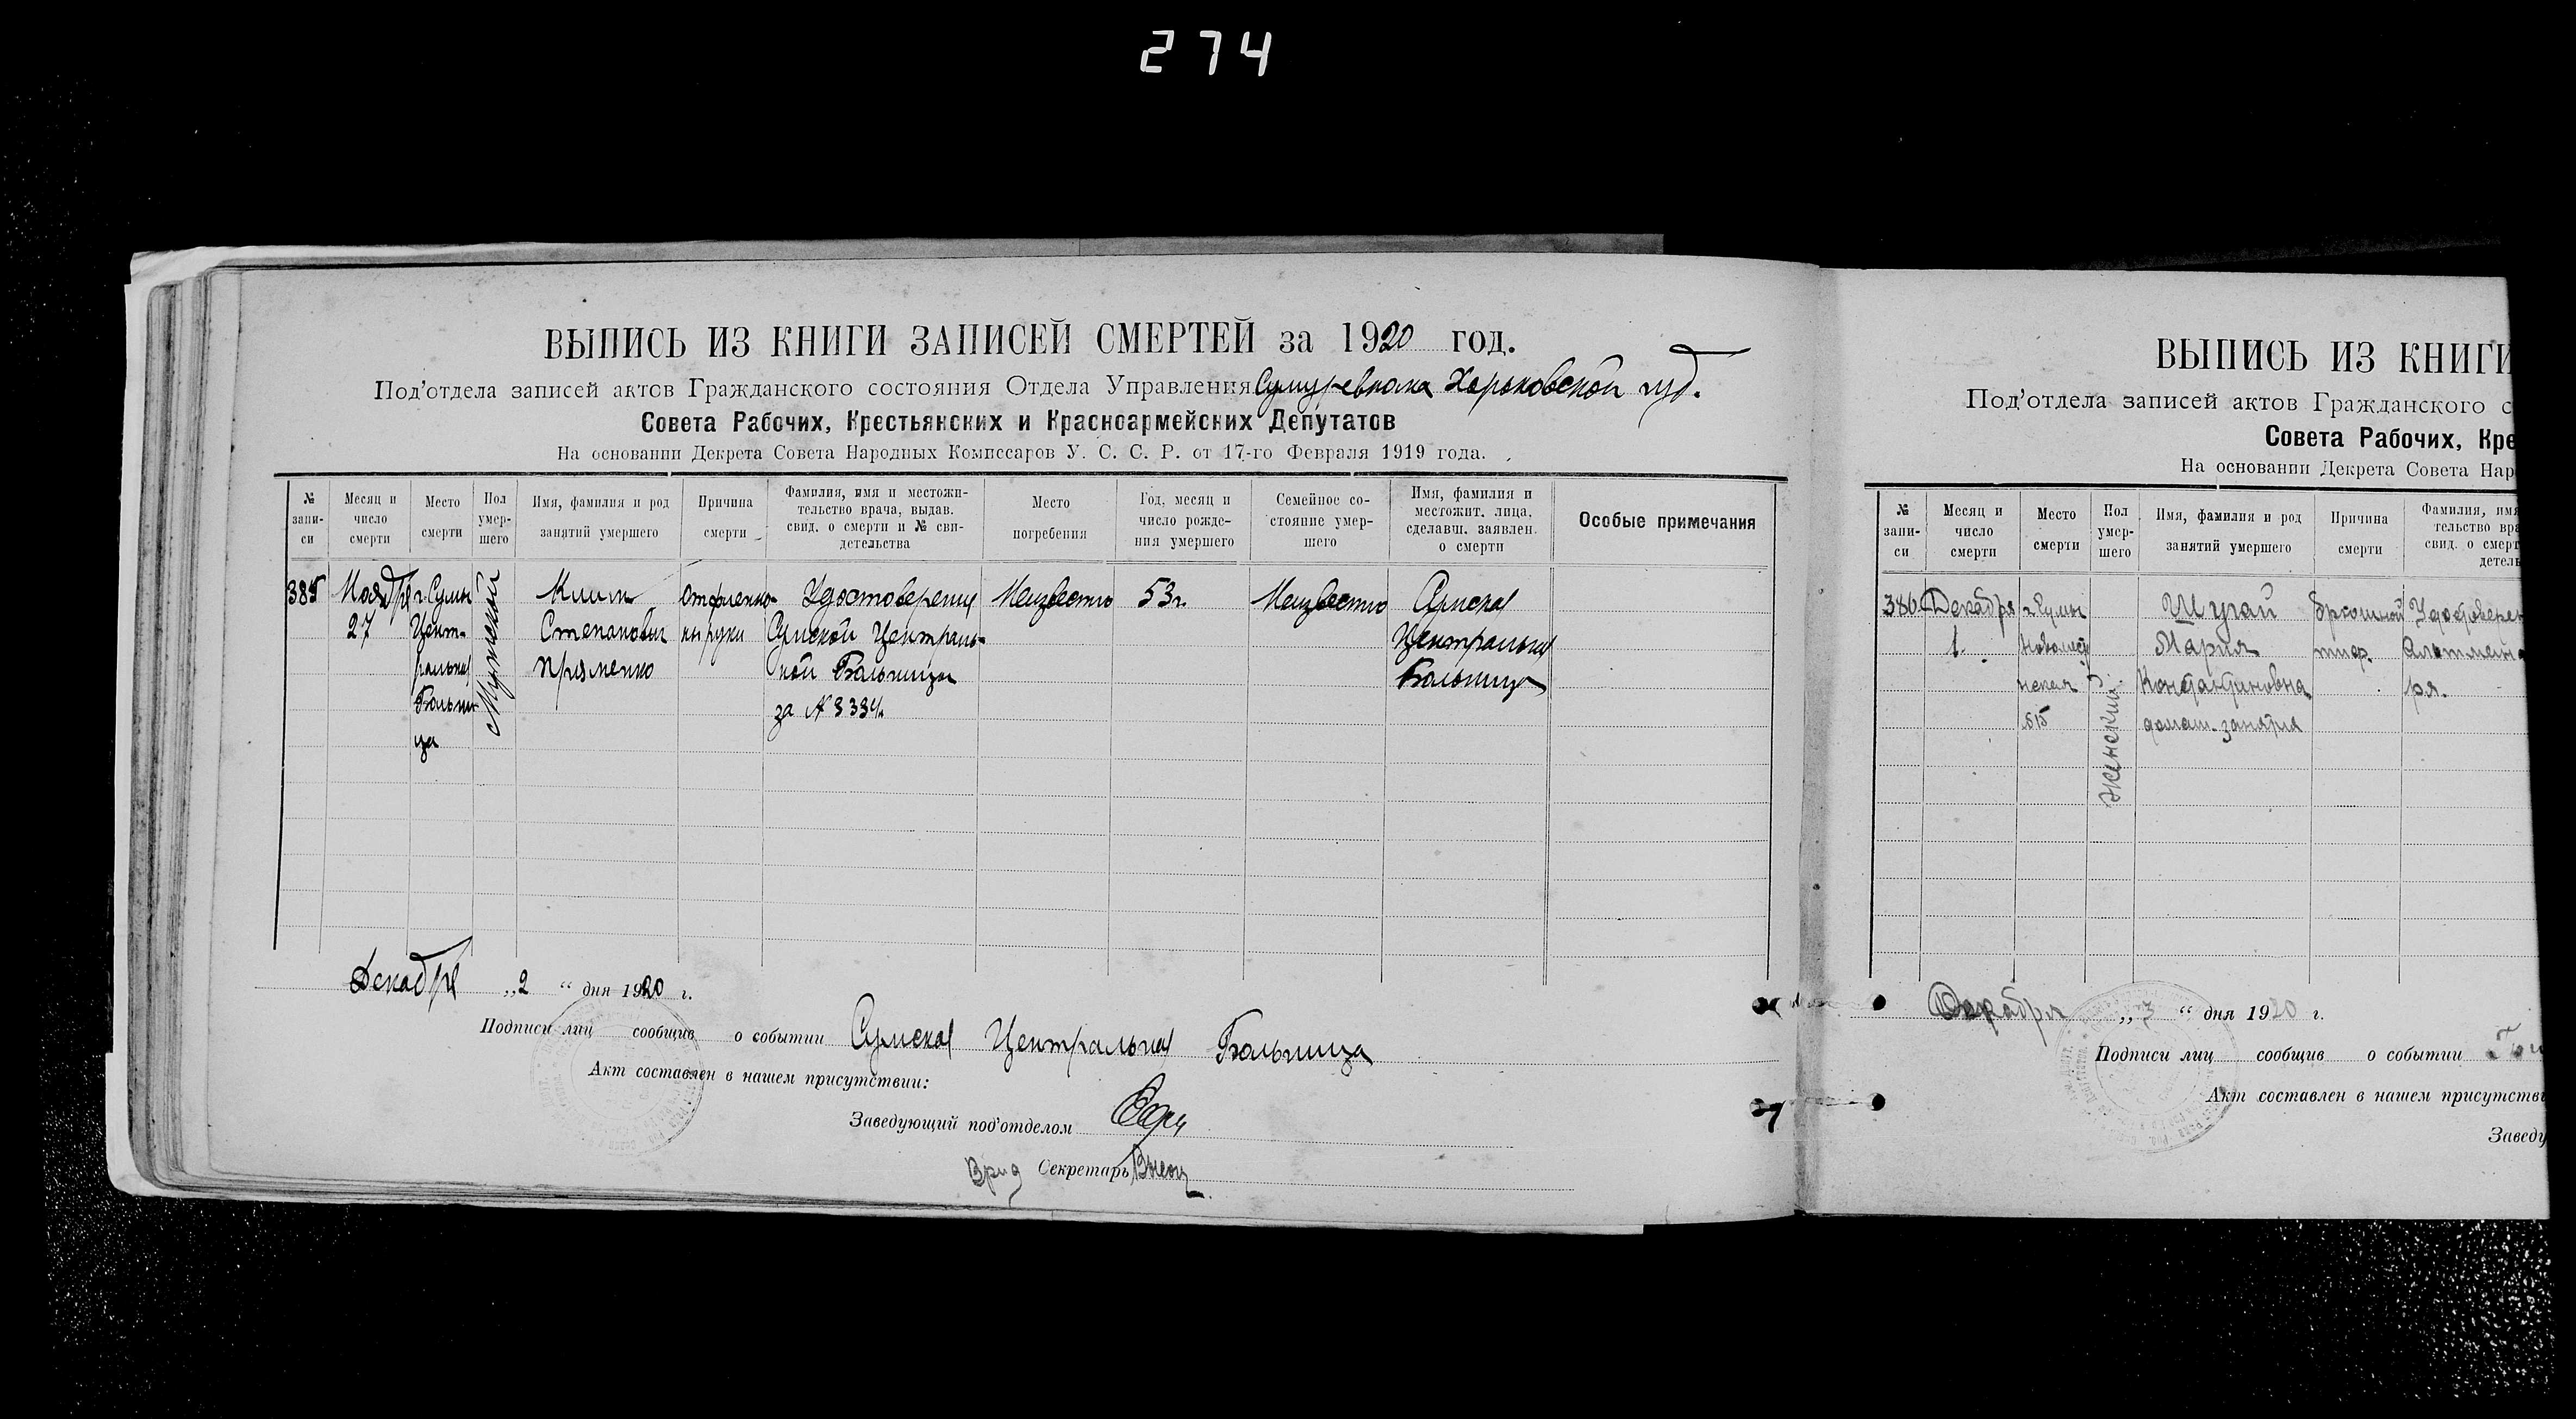 274
ВЫПИСЬ ИЗ КНИГИ ЗАПИСЕЙ СМЕРТЕЙ за 1920 год.
Под'отдела записей актов Гражданского состояния Отдела Управления Сумуревкома Харьковской губ.
Совета Рабочих, Крестьянских и Красноармейских Депутатов
На основании Декрета Совета Народных Комиссаров У. С. С. Р. от 17-го Февраля 1919 года.
№ запи-
си
Месяц и
число
смерти
Место
смерти
Пол
умер-
шего
Имя, фамилия и род
занятий умершего
Причина
смерти
Фамилия, имя и местожи-
тельство врача, выдав.
свид. о смерти и № сви-
детельства
Место
погребения
Год, месяц и
число рожде-
ния умершего
Семейное со-
стояние умер-
шего
Имя, фамилия и
местожит. лица,
сделавш. заявлен.
о смерти
Особые примечания
385
Ноября
27
г. Сумы
Цент-
ральная
Больни
ца
Мужской
Клим
Степанович
Пряменко
Удостоверение
Сумской Централь-
ной Больницы
за № 3334
Неизвестно
53 г.
Неизвестно
Сумская
Центральная
Больница
Декабря „2“ дня 1920 г.
Подписи лиц сообщив о событии Сумская Центральная Больница
Акт составлен в нашем присутствии:
Заведующий под'отделом
Врид Секретарь
ВЫПИСЬ ИЗ КНИГИ
Под'отдела записей актов Гражданского с
Совета Рабочих, Кре
На основании Декрета Совета Нар
№
запи-
си
Месяц и
число
смерти
Место
смерти
Пол
умер-
шего
Имя, фамилия и род
занятий умершего
Причина
смерти
Фамилия, имя
тельство вра
свид. о смерт
детель
386
Декабря
1
г. Сумы
515
Женский
Шугай
Мария
Константиновна
домаш. занятия
Брюшной
тиф.
Удостоверен
ря.
Декабря „3“ дня 1920 г.
Подписи лиц сообщив о событии
Акт составлен в нашем присутстви
Заведу